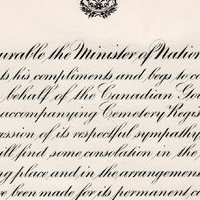 urable the Minister of Nation
ts his compliments and begs to co
behalf of the Canadian Gov
accompanying Cemetery Regis
ession of its respectful sympathy
ill find some consolation in the
ng place and in the arrangemen
ve been made for its permanent ca